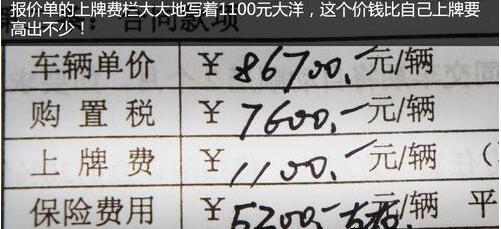 报价单的上牌费栏大大地写着1100元大洋，这个价钱比自己上牌要
高出不少！
车辆单价 ￥86700.-元/辆
购置税 ￥7600.-元/辆
上牌费 ￥1100.-元/辆 （
保险费用 ￥5200.- 平